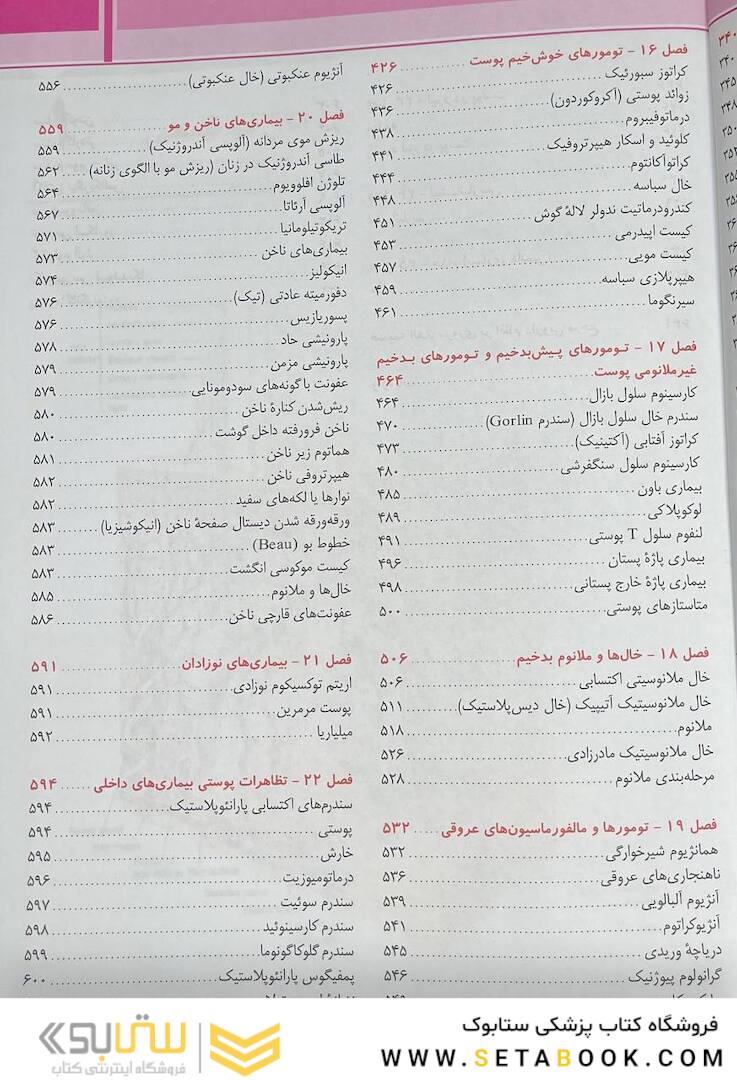 فصل ۱۶ - تومورهای خوش‌خیم پوست ۴۲۶
کراتوز سبورئیک ۴۲۶
زوائد پوستی (آکروکوردون) ۴۳۶
درماتوفیبروم ۴۳۸
کلوئید و اسکار هیپرتروفیک ۴۴۱
کراتوآکانتوم ۴۴۴
خال سباسه ۴۴۸
کندرودرماتیت ندولر لالهٔ گوش ۴۵۱
کیست اپیدرمی ۴۵۳
کیست مویی ۴۵۷
هیپرپلازی سباسه ۴۵۹
سیرنگوما ۴۶۱
فصل ۱۷ - تومورهای پیش‌بدخیم و تومورهای بدخیم
غیرملانومی پوست ۴۶۴
کارسینوم سلول بازال ۴۶۴
سندرم خال سلول بازال (سندرم Gorlin) ۴۷۰
کراتوز آفتابی (آکتینیک) ۴۷۳
کارسینوم سلول سنگفرشی ۴۸۰
بیماری باون ۴۸۵
لوکوپلاکی ۴۸۹
لنفوم سلول T پوستی ۴۹۱
بیماری پاژهٔ پستان ۴۹۶
بیماری پاژهٔ خارج پستانی ۴۹۸
متاستازهای پوستی ۵۰۰
فصل ۱۸ - خال‌ها و ملانوم بدخیم ۵۰۶
خال ملانوسیتی اکتسابی ۵۰۶
خال ملانوسیتیک آتیپیک (خال دیس‌پلاستیک) ۵۱۱
ملانوم ۵۱۸
خال ملانوسیتیک مادرزادی ۵۲۶
مرحله‌بندی ملانوم ۵۲۸
فصل ۱۹ - تومورها و مالفورماسیون‌های عروقی ۵۳۲
همانژیوم شیرخوارگی ۵۳۲
ناهنجاری‌های عروقی ۵۳۶
آنژیوم آلبالویی ۵۳۹
آنژیوکراتوم ۵۴۱
دریاچهٔ وریدی ۵۴۵
گرانولوم پیوژنیک ۵۴۶
آنژیوم عنکبوتی (خال عنکبوتی) ۵۵۶
فصل ۲۰ - بیماری‌های ناخن و مو ۵۵۹
ریزش موی مردانه (آلوپسی آندروژنیک) ۵۵۹
طاسی آندروژنیک در زنان (ریزش مو با الگوی زنانه) ۵۶۲
تلوژن افلوویوم ۵۶۴
آلوپسی آرئاتا ۵۶۷
تریکوتیلومانیا ۵۷۱
بیماری‌های ناخن ۵۷۳
انیکولیز ۵۷۴
دفورمیته عادتی (تیک) ۵۷۶
پسوریازیس ۵۷۶
پارونیشی حاد ۵۷۸
پارونیشی مزمن ۵۷۹
عفونت با گونه‌های سودومونایی ۵۷۹
ریش‌شدن کنارهٔ ناخن ۵۸۰
ناخن فرورفته داخل گوشت ۵۸۰
هماتوم زیر ناخن ۵۸۱
هیپرتروفی ناخن ۵۸۲
نوارها یا لکه‌های سفید ۵۸۲
ورقه‌ورقه شدن دیستال صفحهٔ ناخن (انیکوشیزیا) ۵۸۳
خطوط بو (Beau) ۵۸۳
کیست موکوسی انگشت ۵۸۳
خال‌ها و ملانوم ۵۸۵
عفونت‌های قارچی ناخن ۵۸۶
فصل ۲۱ - بیماری‌های نوزادان ۵۹۱
اریتم توکسیکوم نوزادی ۵۹۱
پوست مرمرین ۵۹۱
میلیاریا ۵۹۲
فصل ۲۲ - تظاهرات پوستی بیماری‌های داخلی ۵۹۴
سندرم‌های اکتسابی پارانئوپلاستیک ۵۹۴
پوستی ۵۹۴
خارش ۵۹۵
درماتومیوزیت ۵۹۶
سندرم سوئیت ۵۹۷
سندرم کارسینوئید ۵۹۸
سندرم گلوکاگونوما ۵۹۹
پمفیگوس پارانئوپلاستیک ۶۰۰
فروشگاه کتاب پزشکی ستابوک
WWW.SETABOOK.COM
ستابوک
فروشگاه اینترنتی کتاب